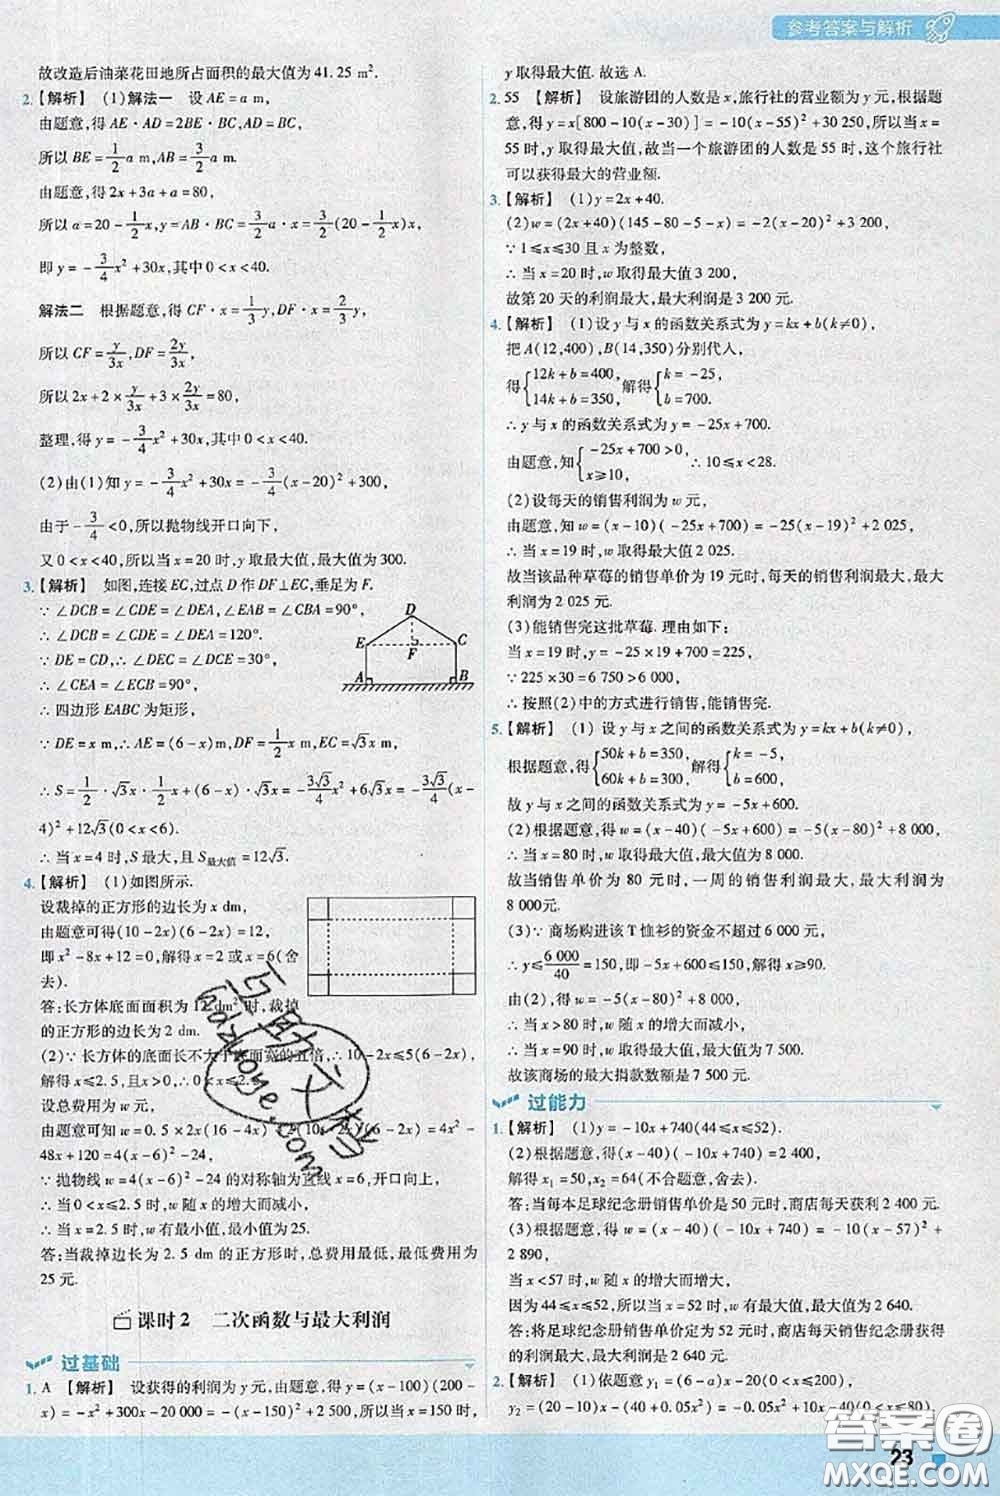 参考答案与解析
故改造后油菜花田地所占面积的最大值为 41.25 m².
2.【解析】 (1)解法一 设 AE=a m,
由题意,得 AE·AD=2BE·BC,AD=BC,
所以 BE=1/2 a m,AB=3/2 a m.
由题意,得 2x+3a+a=80,
所以 a=20-1/2 x,y=AB·BC=3/2 a·x=3/2(20-1/2 x)x,
即 y=-3/4 x²+30x,其中 0<x<40.
解法二 根据题意,得 CF·x=1/3 y,DF·x=2/3 y,
所以 CF=y/3x,DF=2y/3x,
所以 2x+2×y/3x+3×2y/3x=80,
整理,得 y=-3/4 x²+30x,其中 0<x<40.
(2)由(1)知 y=-3/4 x²+30x=-3/4(x-20)²+300,
由于-3/4<0,所以抛物线开口向下,
又 0<x<40,所以当 x=20 时,y 取最大值,最大值为 300.
3.【解析】 如图,连接 EC,过点 D 作 DF⊥EC,垂足为 F.
∵∠DCB=∠CDE=∠DEA,∠EAB=∠CBA=90°,
∴∠DCB=∠CDE=∠DEA=120°.
∵DE=CD,∴∠DEC=∠DCE=30°,
∴∠CEA=∠ECB=90°,
∴四边形 EABC 为矩形,
D
E
F
C
A
B
∵DE=x m,∴AE=(6-x)m,DF=1/2 x m,EC=√3x m.
∴S=1/2·√3x·1/2 x+(6-x)·√3x=-3√3/4 x²+6√3x=-3√3/4(x-
4)²+12√3(0<x<6).
∴当 x=4 时,S 最大,且 S最大值=12√3.
4.【解析】 (1)如图所示.
设裁掉的正方形的边长为 x dm,
由题意可得(10-2x)(6-2x)=12,
即 x²-8x+12=0,解得 x=2 或 x=6(舍
去).
答:长方体底面面积为 12 dm² 时,裁掉
的正方形的边长为 2 dm.
(2)∵长方体的底面长不大于底面宽的五倍,∴10-2x≤5(6-2x),
解得 x≤2.5,∴0<x≤2.5.
设总费用为 w 元,
由题意可知 w=0.5×2x(16-4x)+2(10-2x)(6-2x)=4x²-
48x+120=4(x-6)²-24,
∵抛物线 w=4(x-6)²-24 的对称轴为直线 x=6,开口向上,
∴当 0<x≤2.5 时,w 随 x 的增大而减小,
∴当 x=2.5 时,w 有最小值,最小值为 25.
答:当裁掉边长为 2.5 dm 的正方形时,总费用最低,最低费用为
25 元.
课时2 二次函数与最大利润
过基础
1. A 【解析】 设获得的利润为 y 元,由题意,得 y=(x-100)(200-
x)=-x²+300x-20 000=-(x-150)²+2 500,所以当 x=150 时,
y 取得最大值. 故选 A.
2. 55 【解析】 设旅游团的人数是 x,旅行社的营业额为 y 元,根据题
意,得 y=x[800-10(x-30)]=-10(x-55)²+30 250,所以当 x=
55 时,y 取得最大值,故当一个旅游团的人数是 55 时,这个旅行社
可以获得最大的营业额.
3.【解析】 (1)y=2x+40.
(2)w=(2x+40)(145-80-5-x)=-2(x-20)²+3 200,
∵1≤x≤30 且 x 为整数,
∴当 x=20 时,w 取得最大值 3 200,
故第 20 天的利润最大,最大利润是 3 200 元.
4.【解析】 (1)设 y 与 x 的函数关系式为 y=kx+b(k≠0),
把 A(12,400),B(14,350)分别代入,
得{12k+b=400, 14k+b=350,解得{k=-25, b=700.
∴y 与 x 的函数关系式为 y=-25x+700.
由题意,知{-25x+700>0, x≥10,∴10≤x<28.
(2)设每天的销售利润为 w 元,
由题意,知 w=(x-10)(-25x+700)=-25(x-19)²+2 025,
∴当 x=19 时,w 取得最大值 2 025.
故当该品种草莓的销售单价为 19 元时,每天的销售利润最大,最大
利润为 2 025 元.
(3)能销售完这批草莓. 理由如下:
当 x=19 时,y=-25×19+700=225,
∵225×30=6 750>6 000,
∴按照(2)中的方式进行销售,能销售完.
5.【解析】 (1) 设 y 与 x 之间的函数关系式为 y=kx+b(k≠0),
根据题意,得{50k+b=350, 60k+b=300,解得{k=-5, b=600.
故 y 与 x 之间的函数关系式为 y=-5x+600.
(2)根据题意,得 w=(x-40)(-5x+600)=-5(x-80)²+8 000,
∴当 x=80 时,w 取得最大值,最大值为 8 000.
故当销售单价为 80 元时,一周的销售利润最大,最大利润为
8 000元.
(3)∵商场购进该 T 恤衫的资金不超过 6 000 元,
∴y≤6 000/40=150,即-5x+600≤150,解得 x≥90,
由(2),得 w=-5(x-80)²+8 000,
∴当 x≥90 时,w 随 x 的增大而减小,
∴当 x=90 时,w 取得最大值,最大值为 7 500.
故该商场的最大捐款数额是 7 500 元.
过能力
1.【解析】 (1)y=-10x+740(44≤x≤52).
(2)根据题意,得(x-40)(-10x+740)=2 400,
解得 x₁=50,x₂=64(不合题意,舍去).
答:当每本足球纪念册销售单价是 50 元时,商店每天获利 2 400 元.
(3)根据题意,得 w=(x-40)(-10x+740)=-10(x-57)²+
2 890,
当 x<57 时,w 随 x 的增大而增大,
因为 44≤x≤52,所以当 x=52 时,w 有最大值,最大值为 2 640.
答:将足球纪念册销售单价定为 52 元时,商店每天销售纪念册获得
的利润最大,最大利润是 2 640 元.
2.【解析】 (1)依题意 y₁=(6-a)x-20(0<x≤200),
y₂=(20-10)x-(40+0.05x²)=-0.05x²+10x-40(0<x≤80),
23
答案圈
MXQE.COM